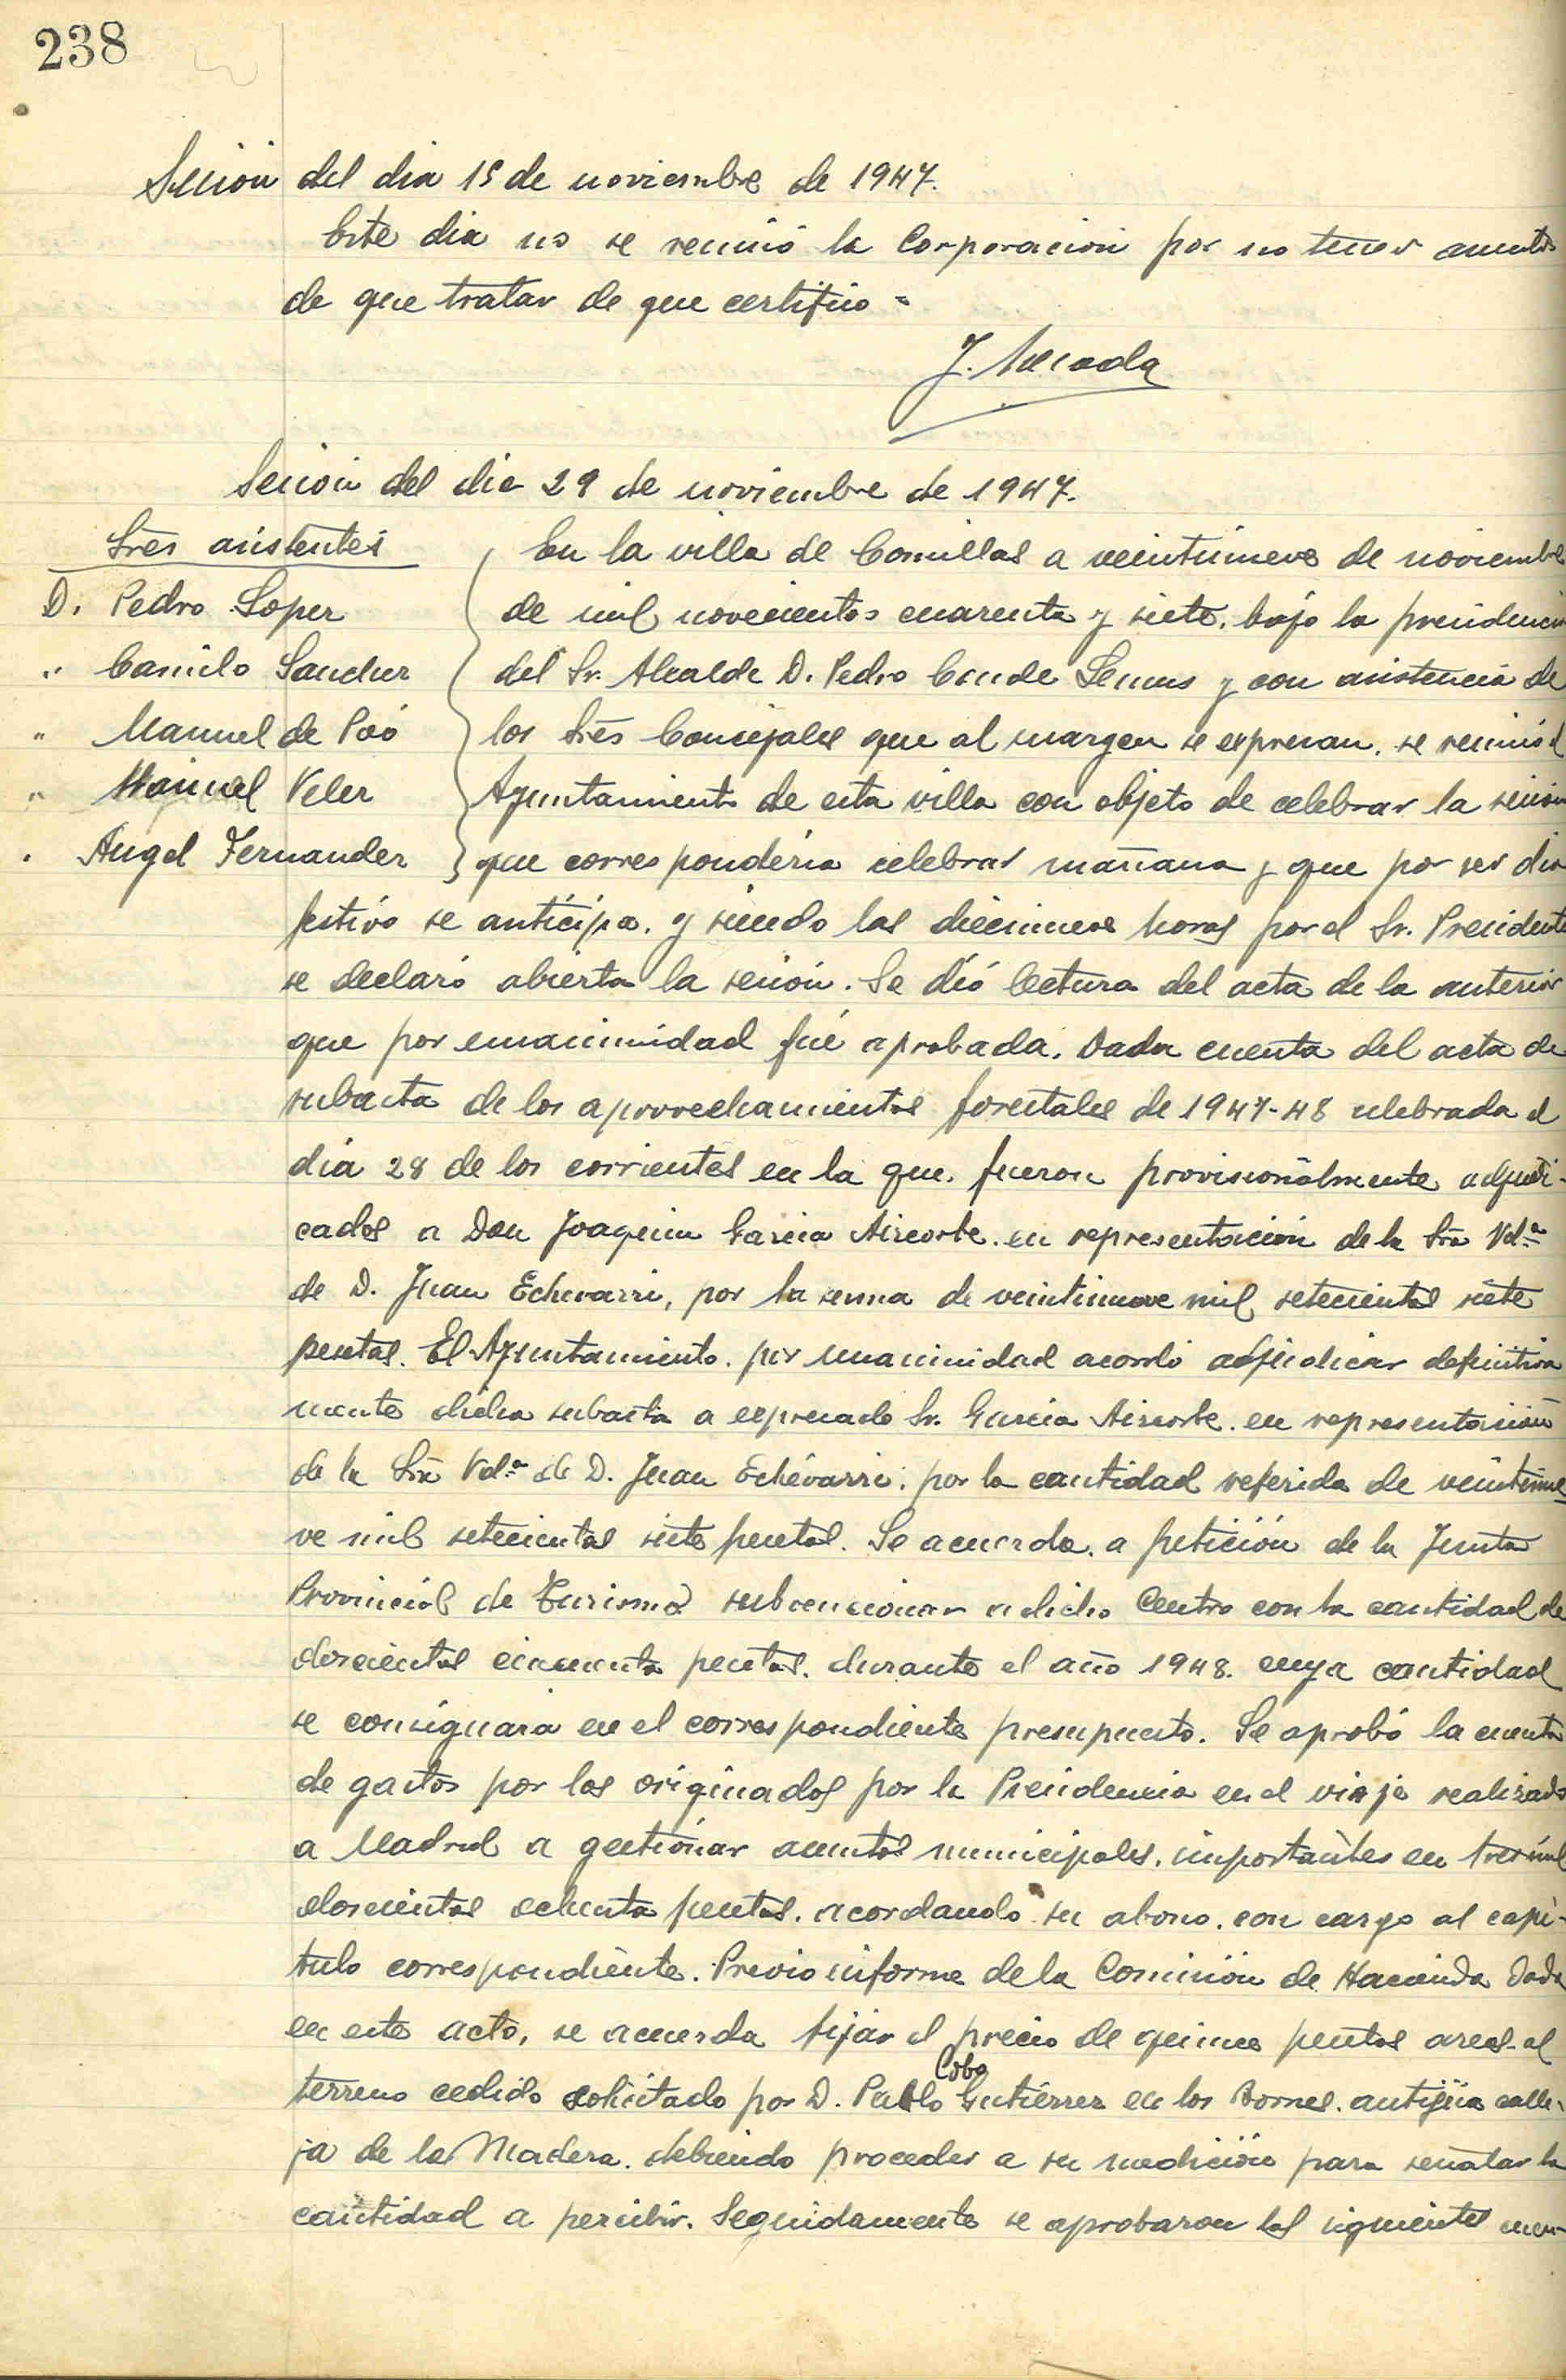 238
Sesion del dia 15 de noviembre de 1947.
Este dia no se reunió la Corporacion por no tener asuntos
de que tratar de que certifico =
Sesion del dia 29 de noviembre de 1947.
Sres asistentes
D. Pedro Lopez
" Camilo Sanchez
" Manuel de Poó
" Manuel Velez
" Angel Fernandez
En la villa de Comillas a veintinueve de noviembre
de mil novecientos cuarenta y siete, bajo la presidencia
del Sr. Alcalde D. Pedro Conde Lemus y con asistencia de
los Sres Concejales que al margen se expresan, se reunió el
Ayuntamiento de esta villa con objeto de celebrar la sesión
que corresponderia celebrar mañana y que por ser dia
festivo se anticipa, y siendo las diecinueve horas por el Sr. Presidente
se declaró abierta la sesión. Se dió lectura del acta de la anterior
que por unanimidad fué aprobada. Dada cuenta del acta de
subasta de los aprovechamientos forestales de 1947-48 celebrada el
dia 28 de los corrientes en la que, fueron provisionalmente adjudi-
cados a Don Joaquin Garcia Aircorbe, en representación de la Sra Vdª
de D. Juan Echevarri, por la suma de veintinueve mil setecientas siete
pesetas. El Ayuntamiento, por unanimidad acordó adjudicar definitiva
mente dicha subasta a expresado Sr. Garcia Aircorbe, en representación
de la Sra Vdª de D. Juan Echévarri, por la cantidad referida de veintinue
ve mil setecientas siete pesetas. Se acuerda, a petición de la Junta
Provincial de Turismo subvencionar a dicho Centro con la cantidad de
doscientas cincuenta pesetas, durante el año 1948, cuya cantidad
se consignará en el correspondiente presupuesto. Se aprobó la cuenta
de gastos por los originados por la Presidencia en el viaje realizado
a Madrid a gestionar asuntos municipales, importantes en tres mil
doscientas ochenta pesetas, acordando su abono, con cargo al capi-
tulo correspondiente. Previo informe de la Comisión de Hacienda dado
en este acto, se acuerda fijar el precio de quince pesetas area al
terreno cedido solicitado por D. Pablo Cobo Gutiérrez en los Bornes, antigüa calle-
ja de la Madera, debiendo proceder a su medición para señalar la
cantidad a percibir. Seguidamente se aprobaron las siguientes cuen-